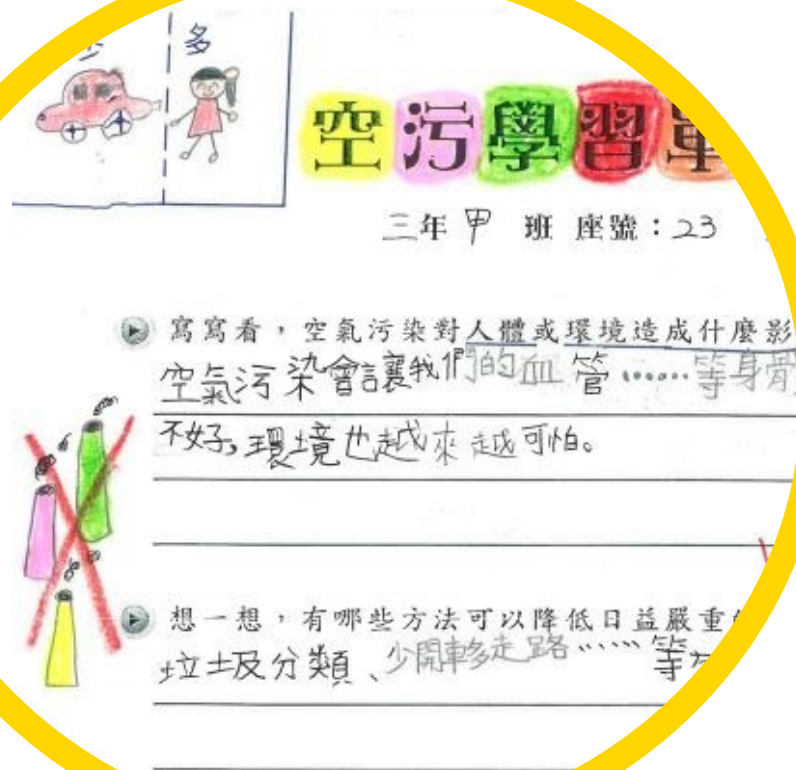 少 多
空污學習單
三年甲班 座號：23
寫寫看，空氣污染對人體或環境造成什麼影
空氣污染會讓我們的血管……等身體
不好，環境也越來越可怕。
想一想，有哪些方法可以降低日益嚴重
垃圾分類、少開車多走路……等方